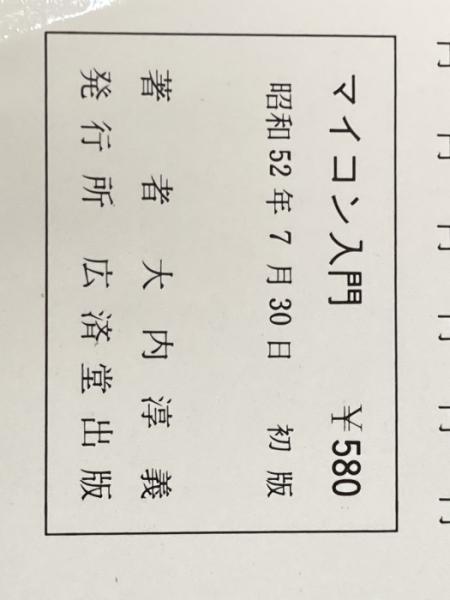 マイコン入門 ¥580
昭和52年7月30日 初版
著者 大内淳義
発行所 広済堂出版
円 円 円 円 円 円